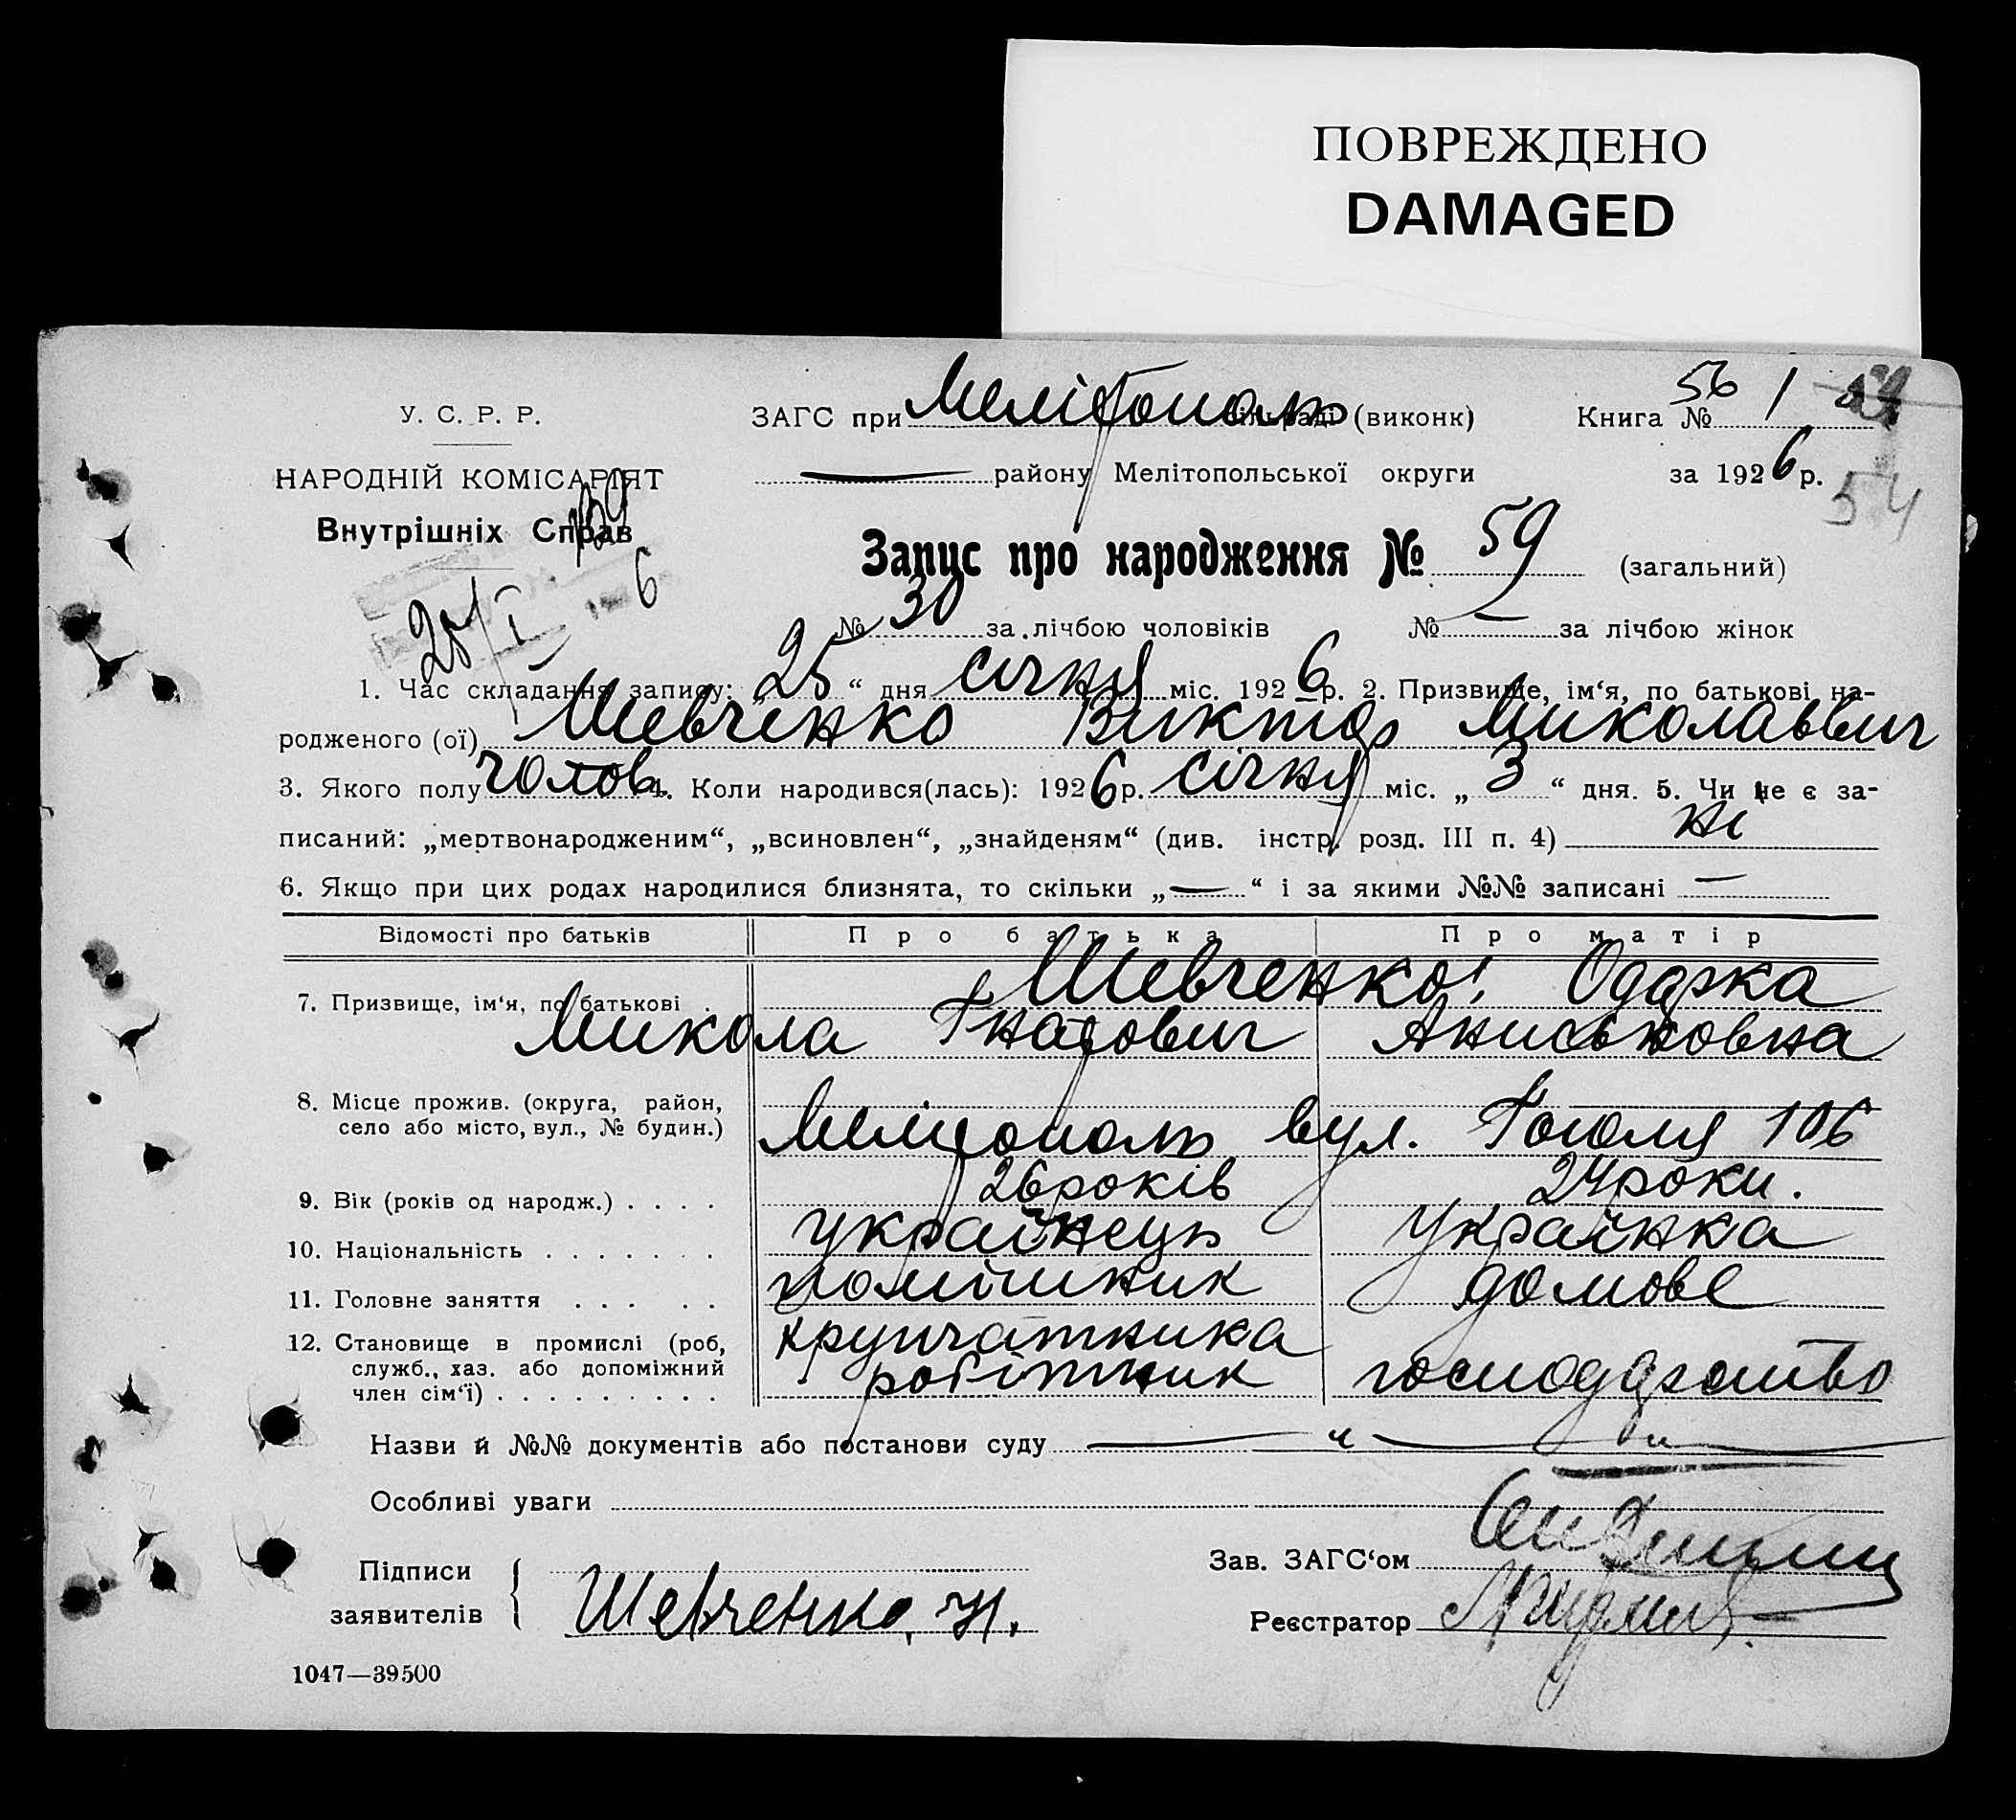 ПОВРЕЖДЕНО
DAMAGED
У. С. Р. Р.
ЗАГС при Мелітополь сільраді (виконк)
Книга № 56 / 1
НАРОДНІЙ КОМІСАРІЯТ
району Мелітопольської округи
за 1926 р.
54
Внутрішніх Справ
59
Запис про народження № 59 (загальний)
25/I 6
№ 30 за лічбою чоловіків № — за лічбою жінок
1. Час складання запису: „ 25 “ дня січня міс. 1926 р. 2. Призвище, ім‘я, по батькові на-
родженого (ої) Шевченко Виктор Миколаевич
3. Якого полу чолов. 4. Коли народився(лась): 1926 р. січня міс. „ 3 “ дня. 5. Чи не є за-
писаний: „мертвонародженим“, „всиновлен“, „знайденям“ (див. інстр. розд. III п. 4) ні
6. Якщо при цих родах народилися близнята, то скільки „ — “ і за якими №№ записані —
Відомості про батьків Про батька Про матір
7. Призвище, ім‘я, по батькові . Шевченко: Одарка
Микола Гнатович Аниськовна
8. Місце прожив. (округа, район,
село або місто, вул., № будин.) Мелітополь вул. Гоголя 106
9. Вік (років од народж.) . . . . 26 років 24 роки.
10. Національність . . . . . . . українець українка
11. Головне заняття . . . . . помішник домове
12. Становище в промислі (роб, крупчатника
служб., хаз. або допоміжний
член сім‘ї) . . . . . . . . . робітник господарство
Назви й №№ документів або постанови суду — „ — „ —
Особливі уваги
Підписи
заявителів
Шевченко. Н.
Зав. ЗАГС‘ом
Реєстратор
1047—39500